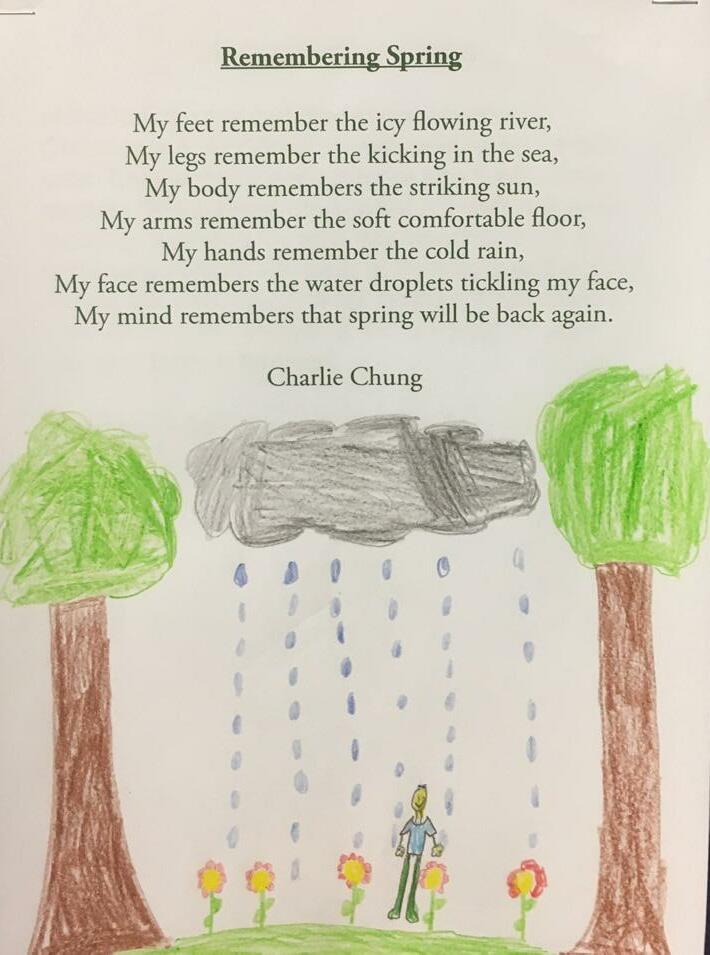 Remembering Spring
My feet remember the icy flowing river,
My legs remember the kicking in the sea,
My body remembers the striking sun,
My arms remember the soft comfortable floor,
My hands remember the cold rain,
My face remembers the water droplets tickling my face,
My mind remembers that spring will be back again.
Charlie Chung